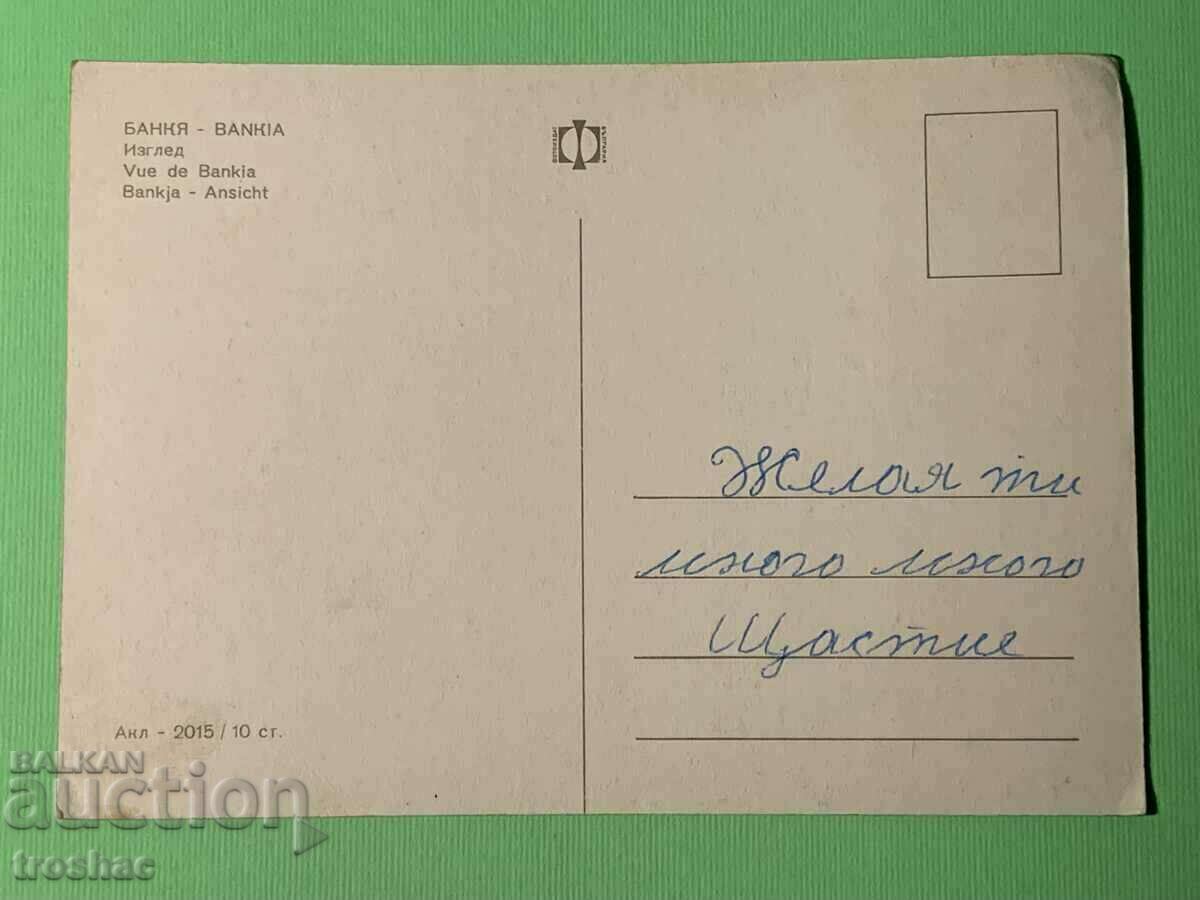 БАНКЯ - BANKIA
Изглед
Vue de Bankia
Bankja - Ansicht
ФОТОИЗДАТ
БЪЛГАРИЯ
Желая ти
много много
Щастие
Акл - 2015 / 10 ст.
BALKAN
auction
troshac